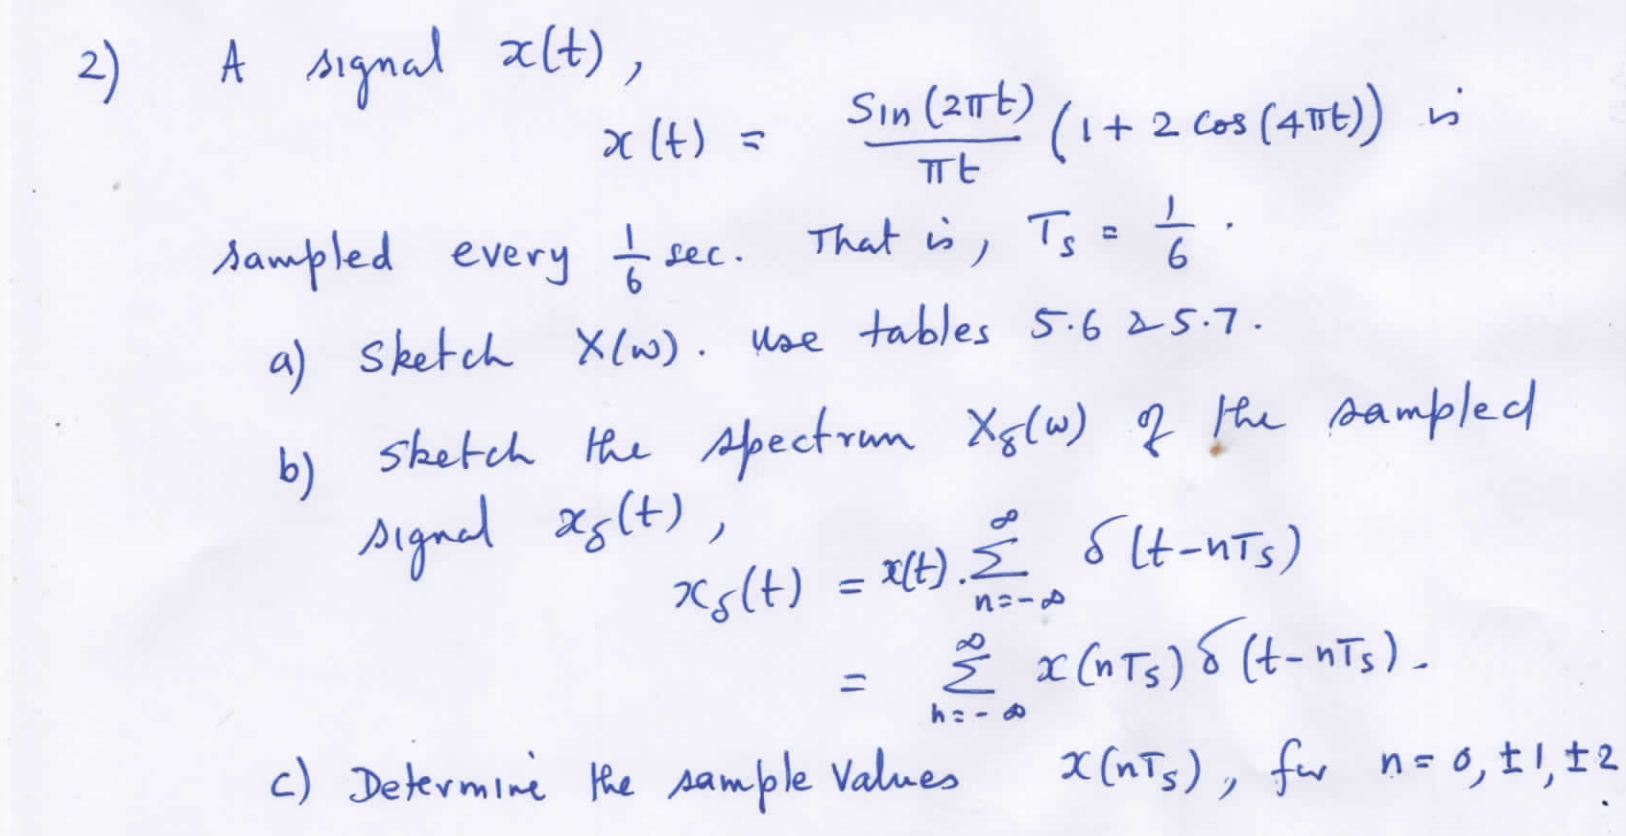 2) A signal x(t),
x(t) = Sin(2πt)/πt (1 + 2 cos(4πt)) is
sampled every 1/6 sec. That is, Ts = 1/6.
a) Sketch X(w). Use tables 5.6 & 5.7.
b) Sketch the spectrum Xδ(w) of the sampled
signal xδ(t),
xδ(t) = x(t). ∑_{n=-∞}^{∞} δ(t-nTs)
= ∑_{n=-∞}^{∞} x(nTs) δ(t-nTs).
c) Determine the sample values x(nTs), for n = 0, ±1, ±2.